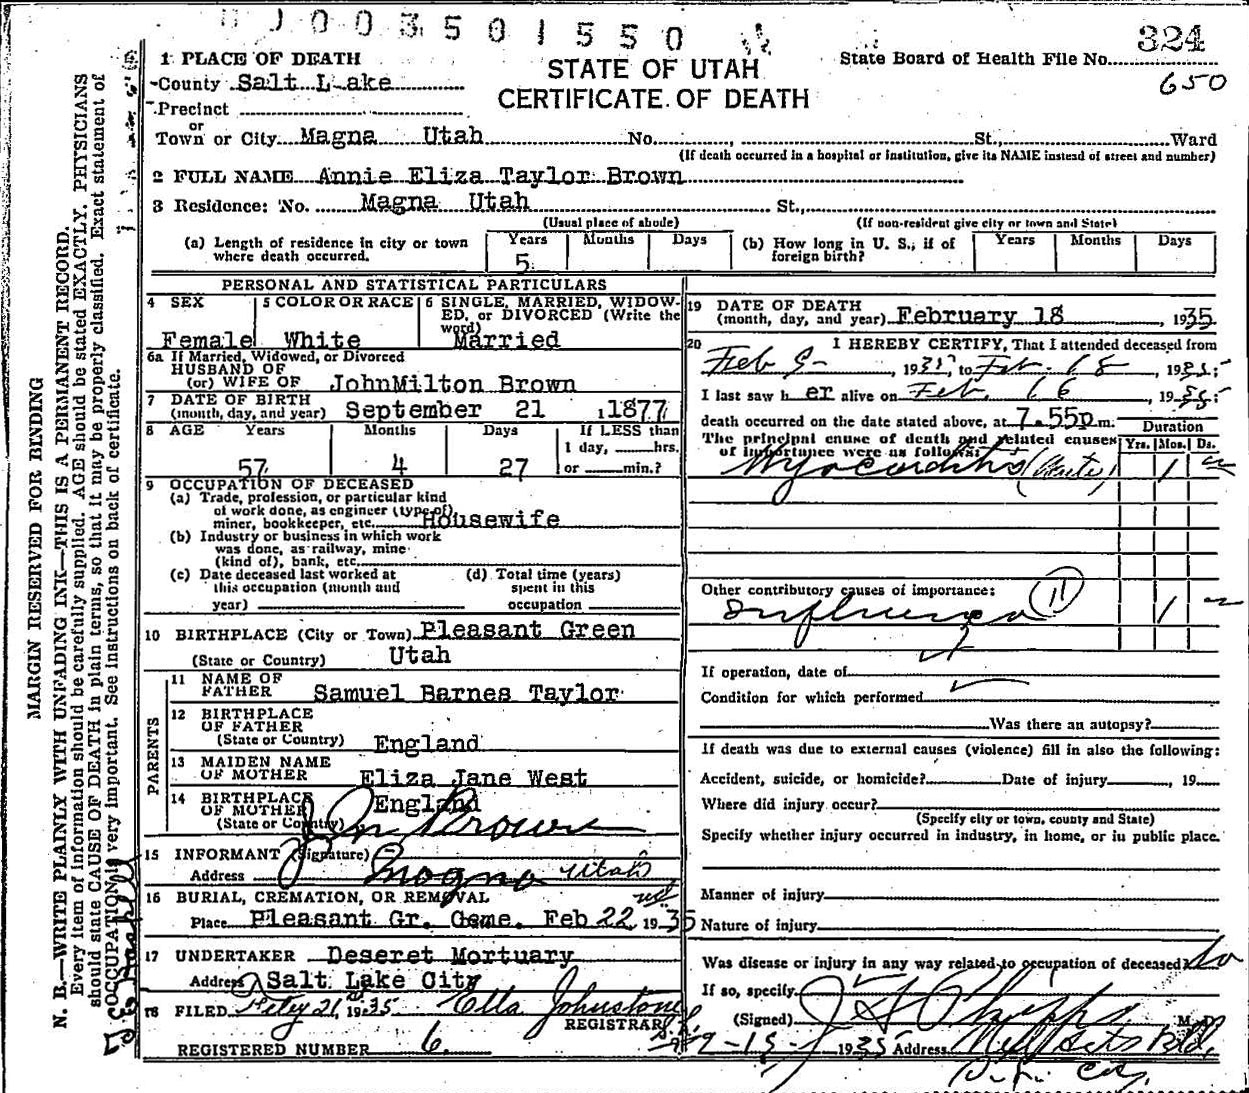 0003501550
324
State Board of Health File No.
650
1 PLACE OF DEATH
STATE OF UTAH
CERTIFICATE OF DEATH
County Salt Lake
Precinct
or
Town or City Magna Utah No. , St., Ward
(If death occurred in a hospital or institution, give its NAME instead of street and number)
2 FULL NAME Annie Eliza Taylor Brown
3 Residence: No. Magna Utah St.,
(Usual place of abode) (If non-resident give city or town and State)
(a) Length of residence in city or town where death occurred. Years 5 Months Days
(b) How long in U. S., if of foreign birth? Years Months Days
PERSONAL AND STATISTICAL PARTICULARS
4 SEX Female
5 COLOR OR RACE White
6 SINGLE, MARRIED, WIDOWED, or DIVORCED (Write the word) Married
6a If Married, Widowed, or Divorced
HUSBAND OF
(or) WIFE OF JohnMilton Brown
7 DATE OF BIRTH
(month, day, and year) September 21 , 1877
8 AGE Years Months Days If LESS than
1 day, hrs.
57 4 27 or min.?
9 OCCUPATION OF DECEASED
(a) Trade, profession, or particular kind
of work done, as engineer (type of),
miner, bookkeeper, etc. Housewife
(b) Industry or business in which work
was done, as railway, mine
(kind of), bank, etc.
(c) Date deceased last worked at
this occupation (month and
year)
(d) Total time (years)
spent in this
occupation
10 BIRTHPLACE (City or Town) Pleasant Green
(State or Country) Utah
PARENTS
11 NAME OF
FATHER Samuel Barnes Taylor
12 BIRTHPLACE
OF FATHER
(State or Country) England
13 MAIDEN NAME
OF MOTHER Eliza Jane West
14 BIRTHPLACE
OF MOTHER England
(State or Country)
15 INFORMANT (Signature) J M Brown
Address Magna Utah
16 BURIAL, CREMATION, OR REMOVAL
Place Pleasant Gr. Ceme. Feb 22, 1935
17 UNDERTAKER Deseret Mortuary
Address Salt Lake City
18 FILED 21, 1935 Etta Johnstone
REGISTRAR
REGISTERED NUMBER 6.
19 DATE OF DEATH
(month, day, and year) February 18 , 1935
20 I HEREBY CERTIFY, That I attended deceased from
Feb , 1935, to Feb. 18 , 1935;
I last saw her alive on Feb. 16 , 1935;
death occurred on the date stated above, at 7.55p m.
Duration
The principal cause of death and related causes
of importance were as follows: Yrs. Mos. Ds.
Myocarditis (Acute) 1
Other contributory causes of importance: 11
Influenza 1
If operation, date of
Condition for which performed
Was there an autopsy?
If death was due to external causes (violence) fill in also the following:
Accident, suicide, or homicide? Date of injury , 19
Where did injury occur?
(Specify city or town, county and State)
Specify whether injury occurred in industry, in home, or in public place.
Manner of injury
Nature of injury
Was disease or injury in any way related to occupation of deceased? No
If so, specify
(Signed) M. D.
1935 Address
MARGIN RESERVED FOR BINDING
N. B.—WRITE PLAINLY WITH UNFADING INK—THIS IS A PERMANENT RECORD.
Every item of information should be carefully supplied. AGE should be stated EXACTLY. PHYSICIANS
should state CAUSE OF DEATH in plain terms, so that it may be properly classified. Exact statement of
OCCUPATION is very important. See instructions on back of certificate.